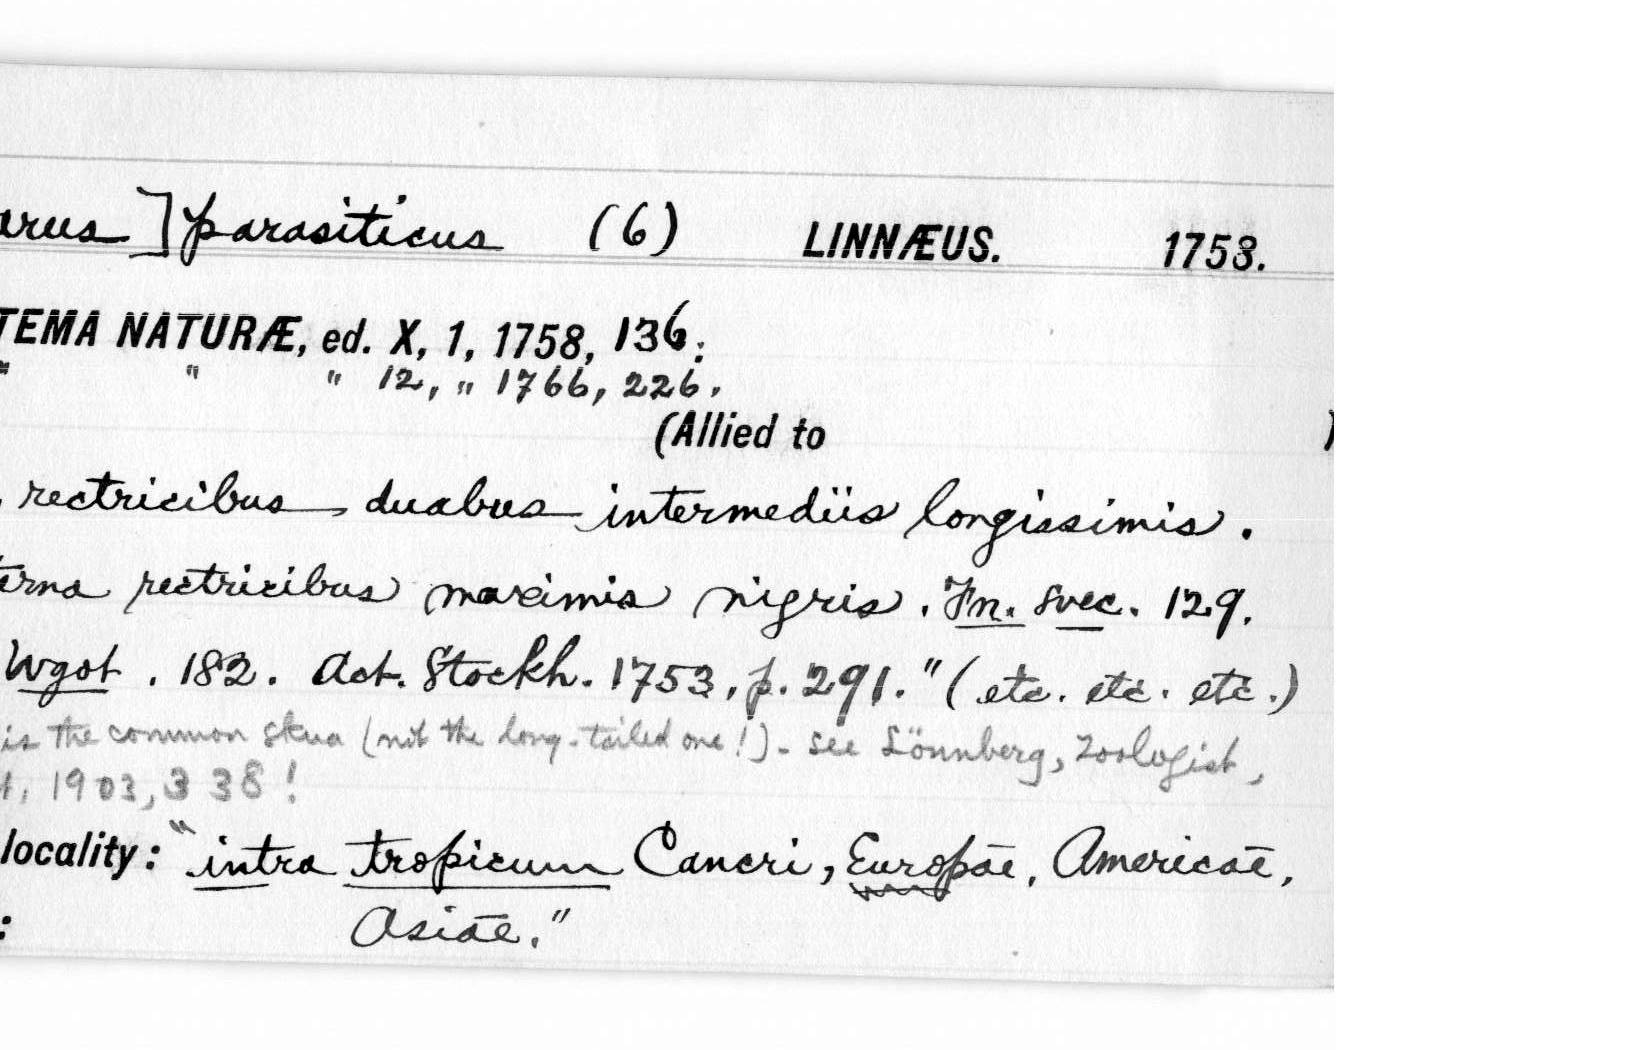 arus] parasiticus (6) LINNÆUS. 1758.
TEMA NATURÆ, ed. X, 1, 1758, 136:
" " " 12, " 1766, 226.
(Allied to )
rectricibus duabus intermediis longissimis.
erna rectricibus maximis nigris. Fn. svec. 129.
Wgot. 182. Act. Stockh. 1753, p. 291." (etc. etc. etc.)
is the common skua (not the long-tailed one!). see Lönnberg, Zoologist,
1903, 338!
locality: "intra tropicum Cancri, Europae, Americae,
: Asiae."